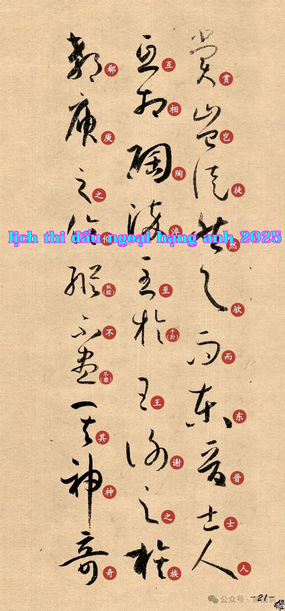 赏岂徒然欤而东晋士人
互相陶淬至于王谢之族
郗庾之伦纵不尽其神奇
lịch thi đấu ngoại hạng anh 2025
公众号
-21-